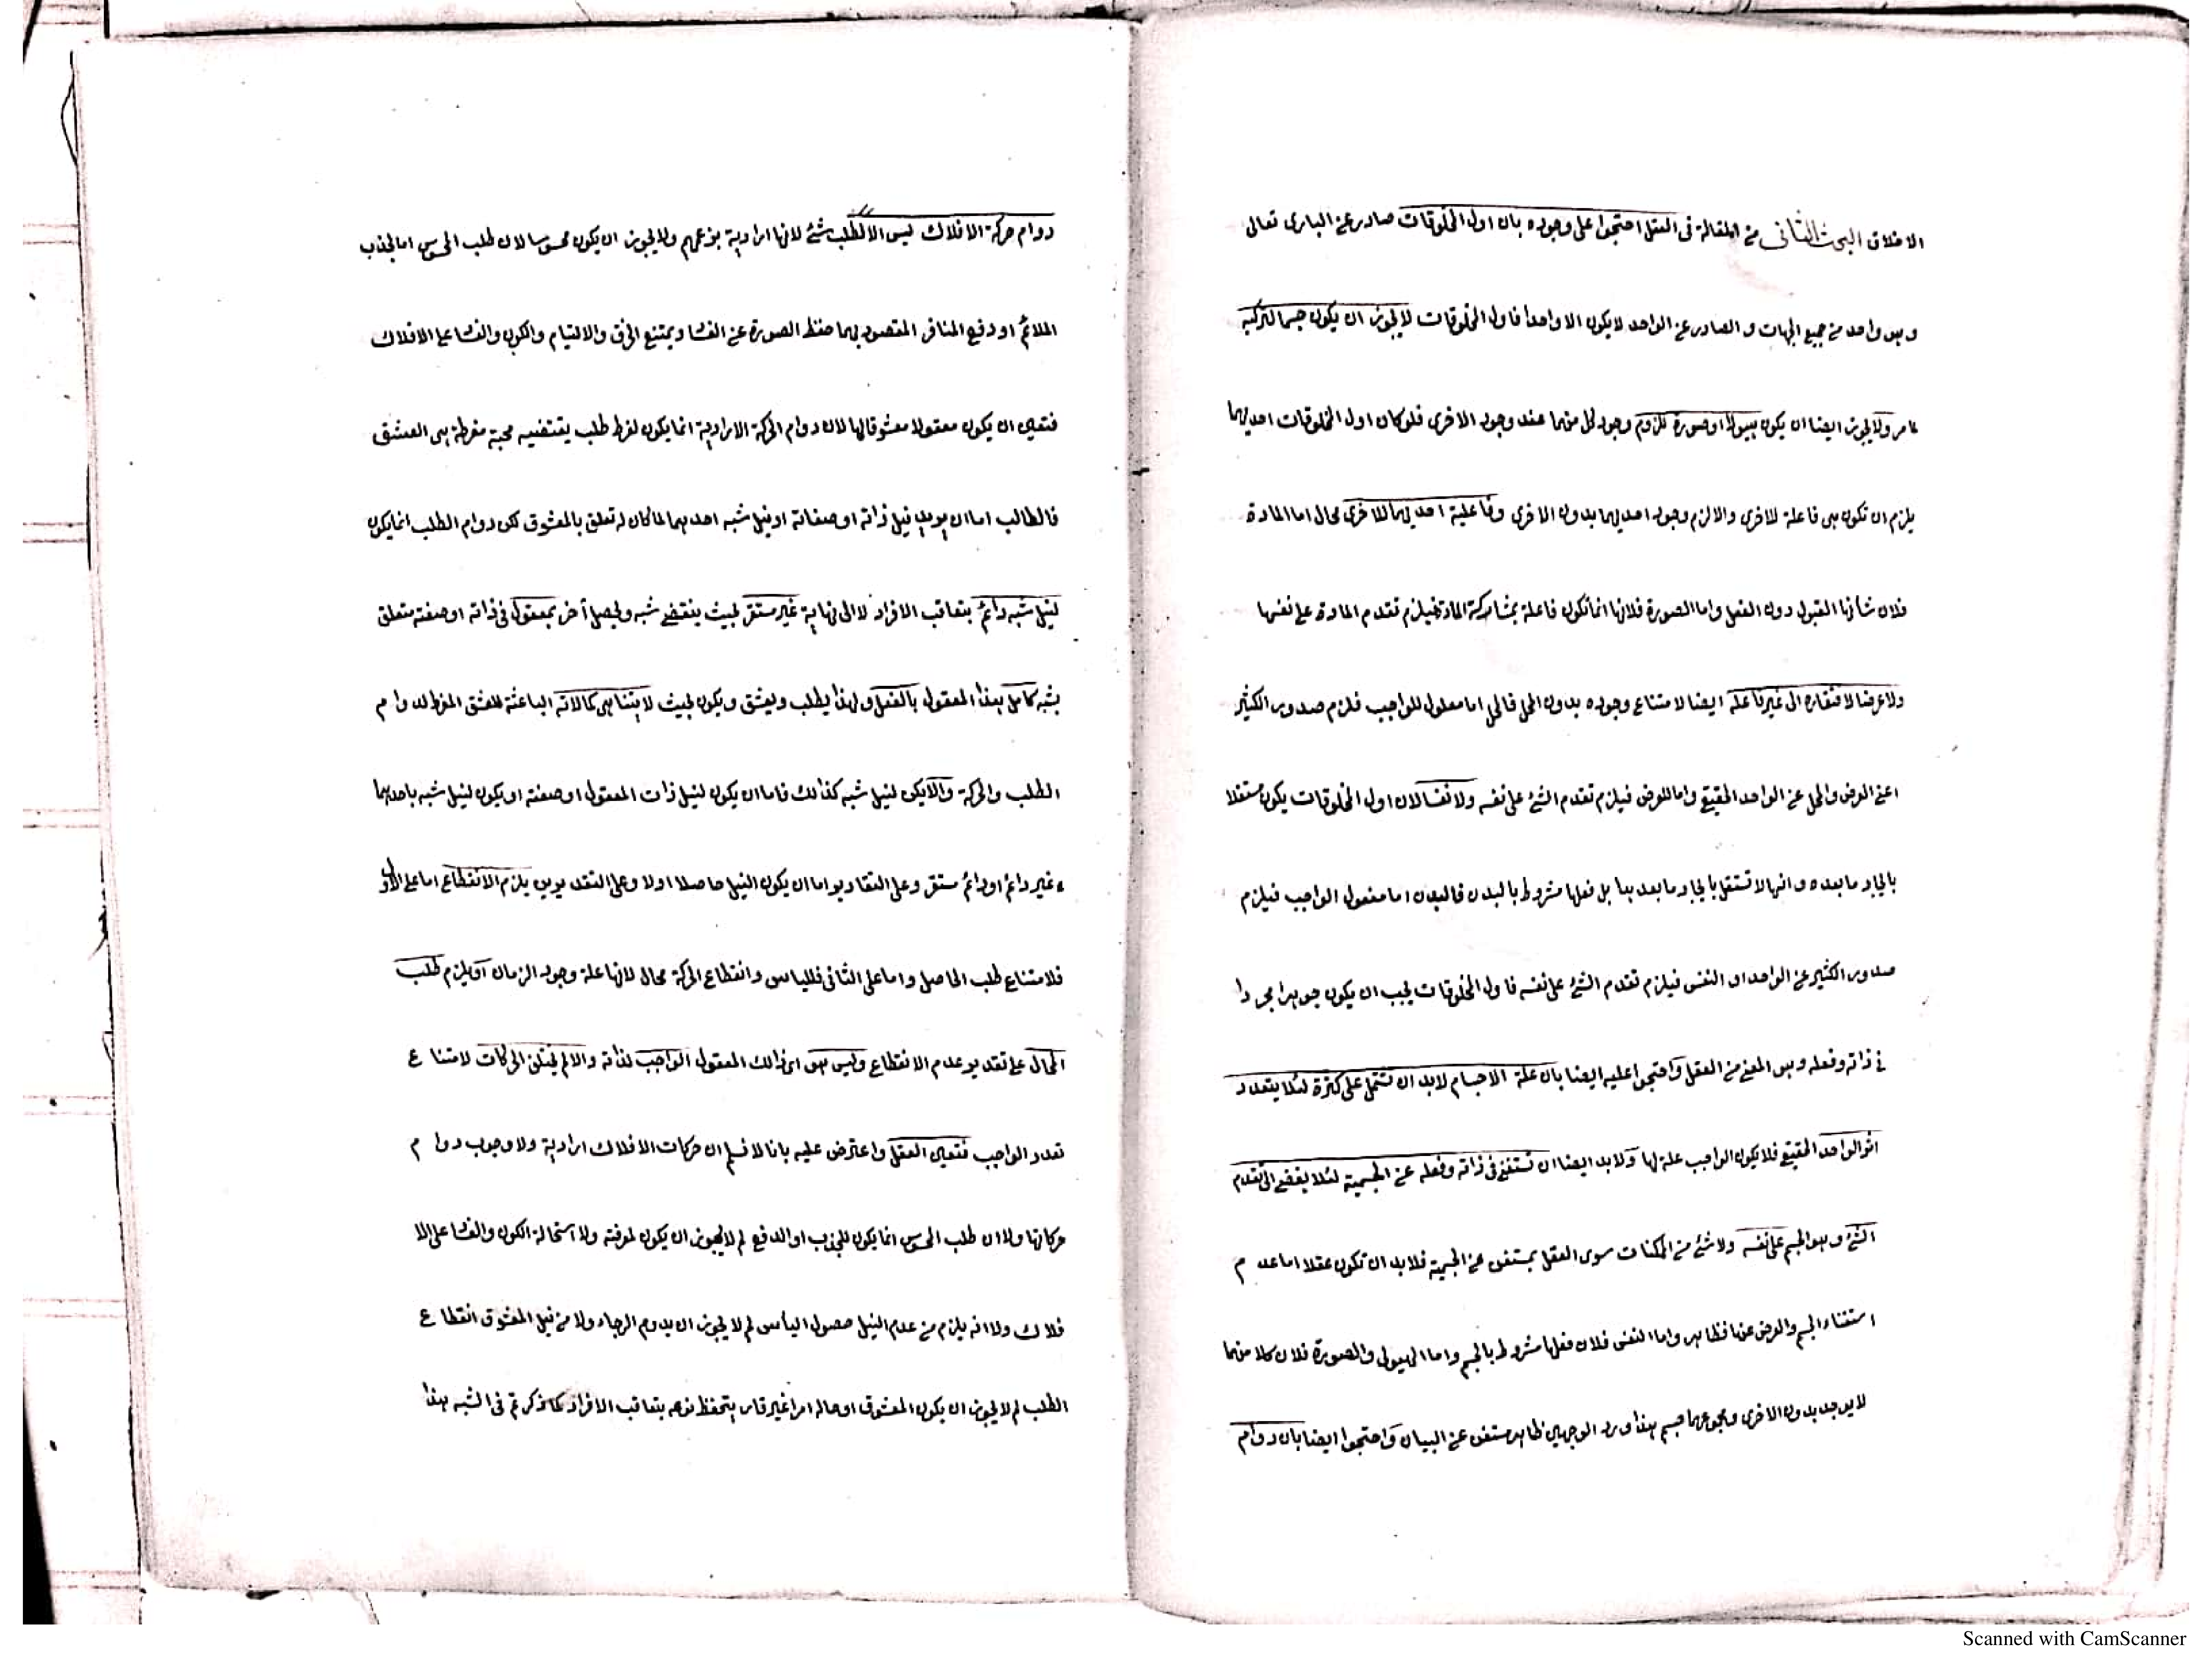 الاخلاق البحث الثانى من المقالة فى العقل احتجوا على وجوده بان اول المخلوقات صادر عن البارى تعالى
وهو واحد من جميع الجهات و الصادر عن الواحد لا يكون الا واحدا فاول المخلوقات لا يجوز ان يكون جسما لتركبه
كما مر ولا يجوز ايضا ان يكون هيولا او صورة للزوم وجود كل منهما عند وجود الاخرى فلو كان اول المخلوقات احديهما
يلزم ان تكون هى فاعلة للاخرى والا لزم وجود احديهما بدون الاخرى وفاعلية احديهما للاخرى محال اما المادة
فلان شانها القبول دون الفعل واما الصورة فلانها انما تكون فاعلة بمشاركة المادة فيلزم تقدم المادة على نفسها
ولا عرضا لافتقاره الى غير فاعله ايضا لامتناع وجوده بدون المحل فالمحل اما معلول للواجب فلزم صدور الكثير
اعنى العرض والمحل عن الواحد الحقيقى واما للعرض فيلزم تقدم الشئ على نفسه ولا نفسا لان اول المخلوقات يكون مستقلا
بايجاد ما بعده و انها لا تستقل بايجاد ما بعدها بل فعلها مشروط بالبدن فالبدن اما مفعول الواجب فيلزم
صدور الكثير عن الواحد او النفس فيلزم تقدم الشئ على نفسه فاول المخلوقات يجب ان يكون جوهرا مجردا
فى ذاته وفعله وهو المعنى من العقل واحتجوا عليه ايضا بان علة الاجسام لا بد ان تشتمل على كثرة لئلا يتعدد
اثر الواحد الحقيقى فلا يكون الواجب علة لها ولا بد ايضا ان تستغنى فى ذاته وفعله عن الجسمية لئلا يفضى الى تقدم
الشئ وهو الجسم على نفسه ولا شئ من الممكنات سوى العقل بمستغن عن الجسمية فلا بد ان تكون عقلا اما عدم
استغناء الجسم والعرض عنها فظاهر واما النفس فلان فعلها مشروط بالجسم واما الهيولى والصورة فلان كلا منهما
لا يوجد بدون الاخرى ومجموعهما جسم هذا ورد الوجهين ظاهر مستغن عن البيان واحتجوا ايضا بان دوام
دوام حركة الافلاك ليس الا لطلب شئ لانها ارادية بزعمهم ولا يجوز ان يكون محسوسا لان طلب المحسوس اما لجذب
الملائم او دفع المنافر المقصود بهما حفظ الصورة عن الفساد ويمتنع الخرق والالتيام والكون والفساد على الافلاك
فتعين ان يكون معقولا معشوقا لها لان دوام الحركة الارادية انما يكون لفرط طلب يقتضيه محبة مفرطة هى العشق
فالطالب اما ان يريد نيل ذاته او صفاته او نيل شبه احدهما لما كان له تعلق بالمعشوق لكن دوام الطلب انما يكون
لنيل شبه دائم بتعاقب الافراد لا الى نهاية غير مستقر بحيث ينقضى شبه ويحصل آخر بمعقول فى ذاته او صفته متعلق
بشبه كامل هذا المعقول بالفعل ولهذا يطلب ويعشق ويكون بحيث لا يتناهى كمالاته الباعثة للعشق المفرط لدوام
الطلب والحركة والا يكن لنيل شبه كذالك فاما ان يكون لنيل ذات المعقول او صفته او يكون لنيل شبه باحدهما
غير دائم او دائم مستقر وعلى التقادير اما ان يكون النيل حاصلا اولا وعلى التقديرين يلزم الانقطاع اما على الاول
فلامتناع طلب الحاصل واما على الثانى فللياس وانقطاع الحركة محال لانها علة وجود الزمان او يلزم طلب
المحال على تقدير عدم الانقطاع وليس هو اى ذالك المعقول الواجب لذاته والا لم يختلف الحركات لامتناع
تعدد الواجب فتعين العقل واعترض عليه بانا لا نسلم ان حركات الافلاك ارادية ولا وجوب دوام
حركاتها ولا ان طلب المحسوس انما يكون للجذب او الدفع لم لا يجوز ان يكون لمعرفته ولا استحالة الكون والفساد على الا
فلاك ولا انه يلزم من عدم النيل حصول اليأس لم لا يجوز ان يدوم الرجاء ولا من نيل المعشوق انقطاع
الطلب لم لا يجوز ان يكون المعشوق او حاله امرا غير قار يتحفظ نوعه بتعاقب الافراد كما ذكرتم فى الشبه هذا
Scanned with CamScanner